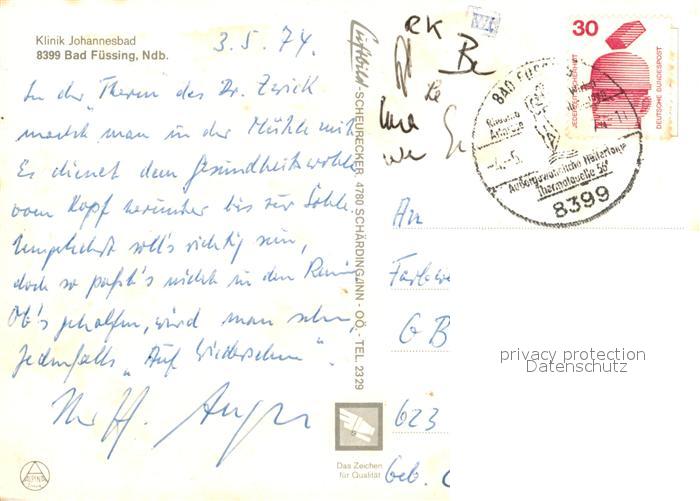 Klinik Johannesbad
8399 Bad Füssing, Ndb.
3.5.74.
In der "Therm" des Dr. Zwick
macht man in der Mühle mit
Es dienet dem Gesundheitswohle
vom Kopf herunter bis zur Sohle.
Umgekehrt soll's richtig sein,
doch so paßt's nicht in den
Ob's geholfen, wird man sehn,
jedenfalls "Auf Wiedersehn".
Luftbild-SCHEURECKER, 4780 SCHÄRDING/INN - OÖ, - TEL. 2329
RK
30
JEDERZEIT SICHERHEIT
DEUTSCHE BUNDESPOST
BAD FÜSSING
-4.-5.
Außergewöhnliche Heilerfolge
Thermalquelle 56°
8399
An
G B
623
geb.
privacy protection
Datenschutz
Das Zeichen
für Qualität
ALPINA